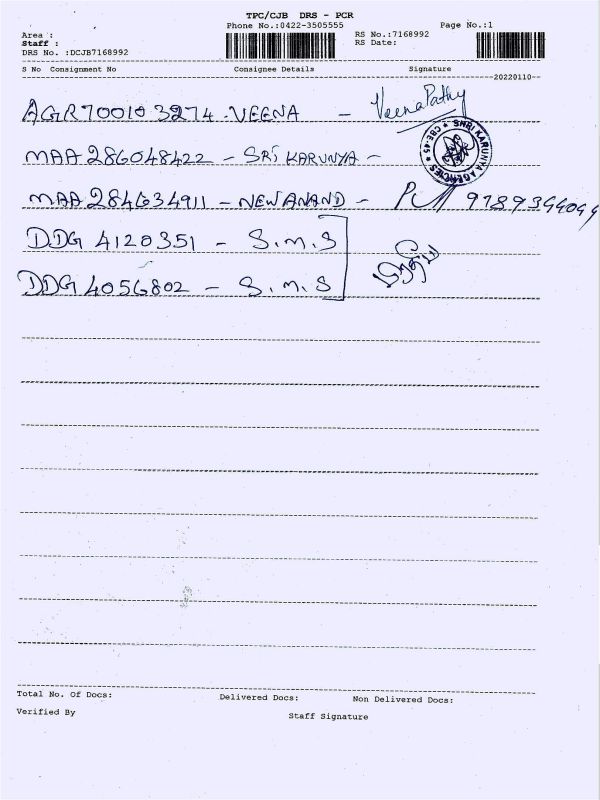 TPC/CJB DRS - PCR
Phone No.:0422-3505555
Page No.:1
Area :
Staff :
DRS No. :DCJB7168992
RS No.:7168992
RS Date:
S No Consignment No Consignee Details Signature
20220110
AGR700103274 - VEENA - VeenaPathy
SHRI KARUNYA AGENCIES ★ CBE-45 ★
MAA 286048422 - SRI KARUNYA -
MAA 284634911 - NEWANAND - 9789394094
DDG 4120351 - S.M.S
DDG 4056802 - S.M.S
Total No. Of Docs: Delivered Docs: Non Delivered Docs:
Verified By Staff Signature